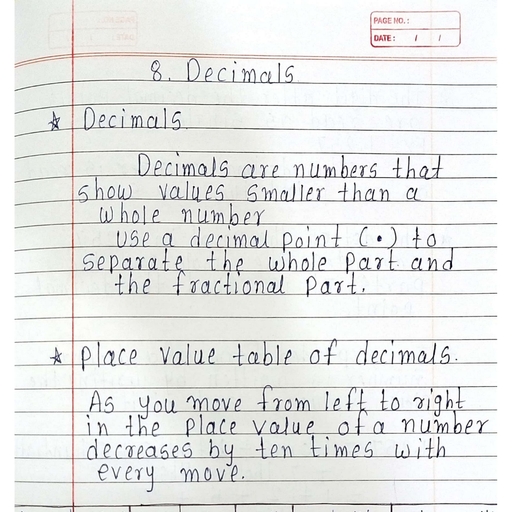 PAGE NO.:
DATE: / /
8. Decimals
☆ Decimals
Decimals are numbers that
show values smaller than a
whole number
use a decimal point (•) to
separate the whole part and
the fractional part.
☆ Place value table of decimals.
As you move from left to right
in the place value of a number
decreases by ten times with
every move.